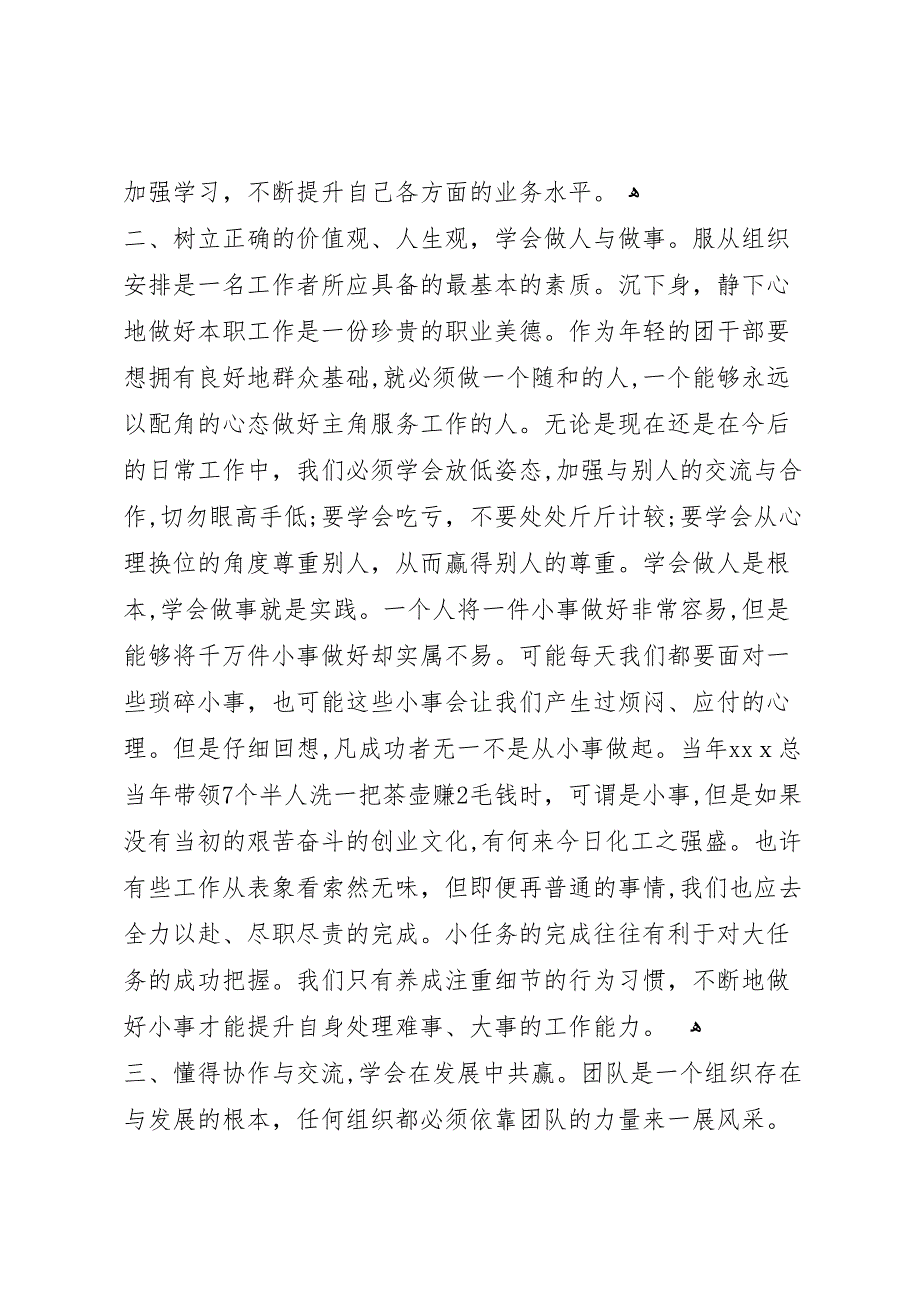 加强学习，不断提升自己各方面的业务水平。 ﻫ
二、树立正确的价值观、人生观，学会做人与做事。服从组织
安排是一名工作者所应具备的最基本的素质。沉下身，静下心
地做好本职工作是一份珍贵的职业美德。作为年轻的团干部要
想拥有良好地群众基础,就必须做一个随和的人,一个能够永远
以配角的心态做好主角服务工作的人。无论是现在还是在今后
的日常工作中，我们必须学会放低姿态,加强与别人的交流与合
作,切勿眼高手低;要学会吃亏，不要处处斤斤计较;要学会从心
理换位的角度尊重别人，从而赢得别人的尊重。学会做人是根
本,学会做事就是实践。一个人将一件小事做好非常容易,但是
能够将千万件小事做好却实属不易。可能每天我们都要面对一
些琐碎小事，也可能这些小事会让我们产生过烦闷、应付的心
理。但是仔细回想,凡成功者无一不是从小事做起。当年xxｘ总
当年带领7个半人洗一把茶壶赚2毛钱时，可谓是小事,但是如果
没有当初的艰苦奋斗的创业文化,有何来今日化工之强盛。也许
有些工作从表象看索然无味，但即便再普通的事情,我们也应去
全力以赴、尽职尽责的完成。小任务的完成往往有利于对大任
务的成功把握。我们只有养成注重细节的行为习惯，不断地做
好小事才能提升自身处理难事、大事的工作能力。 ﻫ
三、懂得协作与交流,学会在发展中共赢。团队是一个组织存在
与发展的根本，任何组织都必须依靠团队的力量来一展风采。